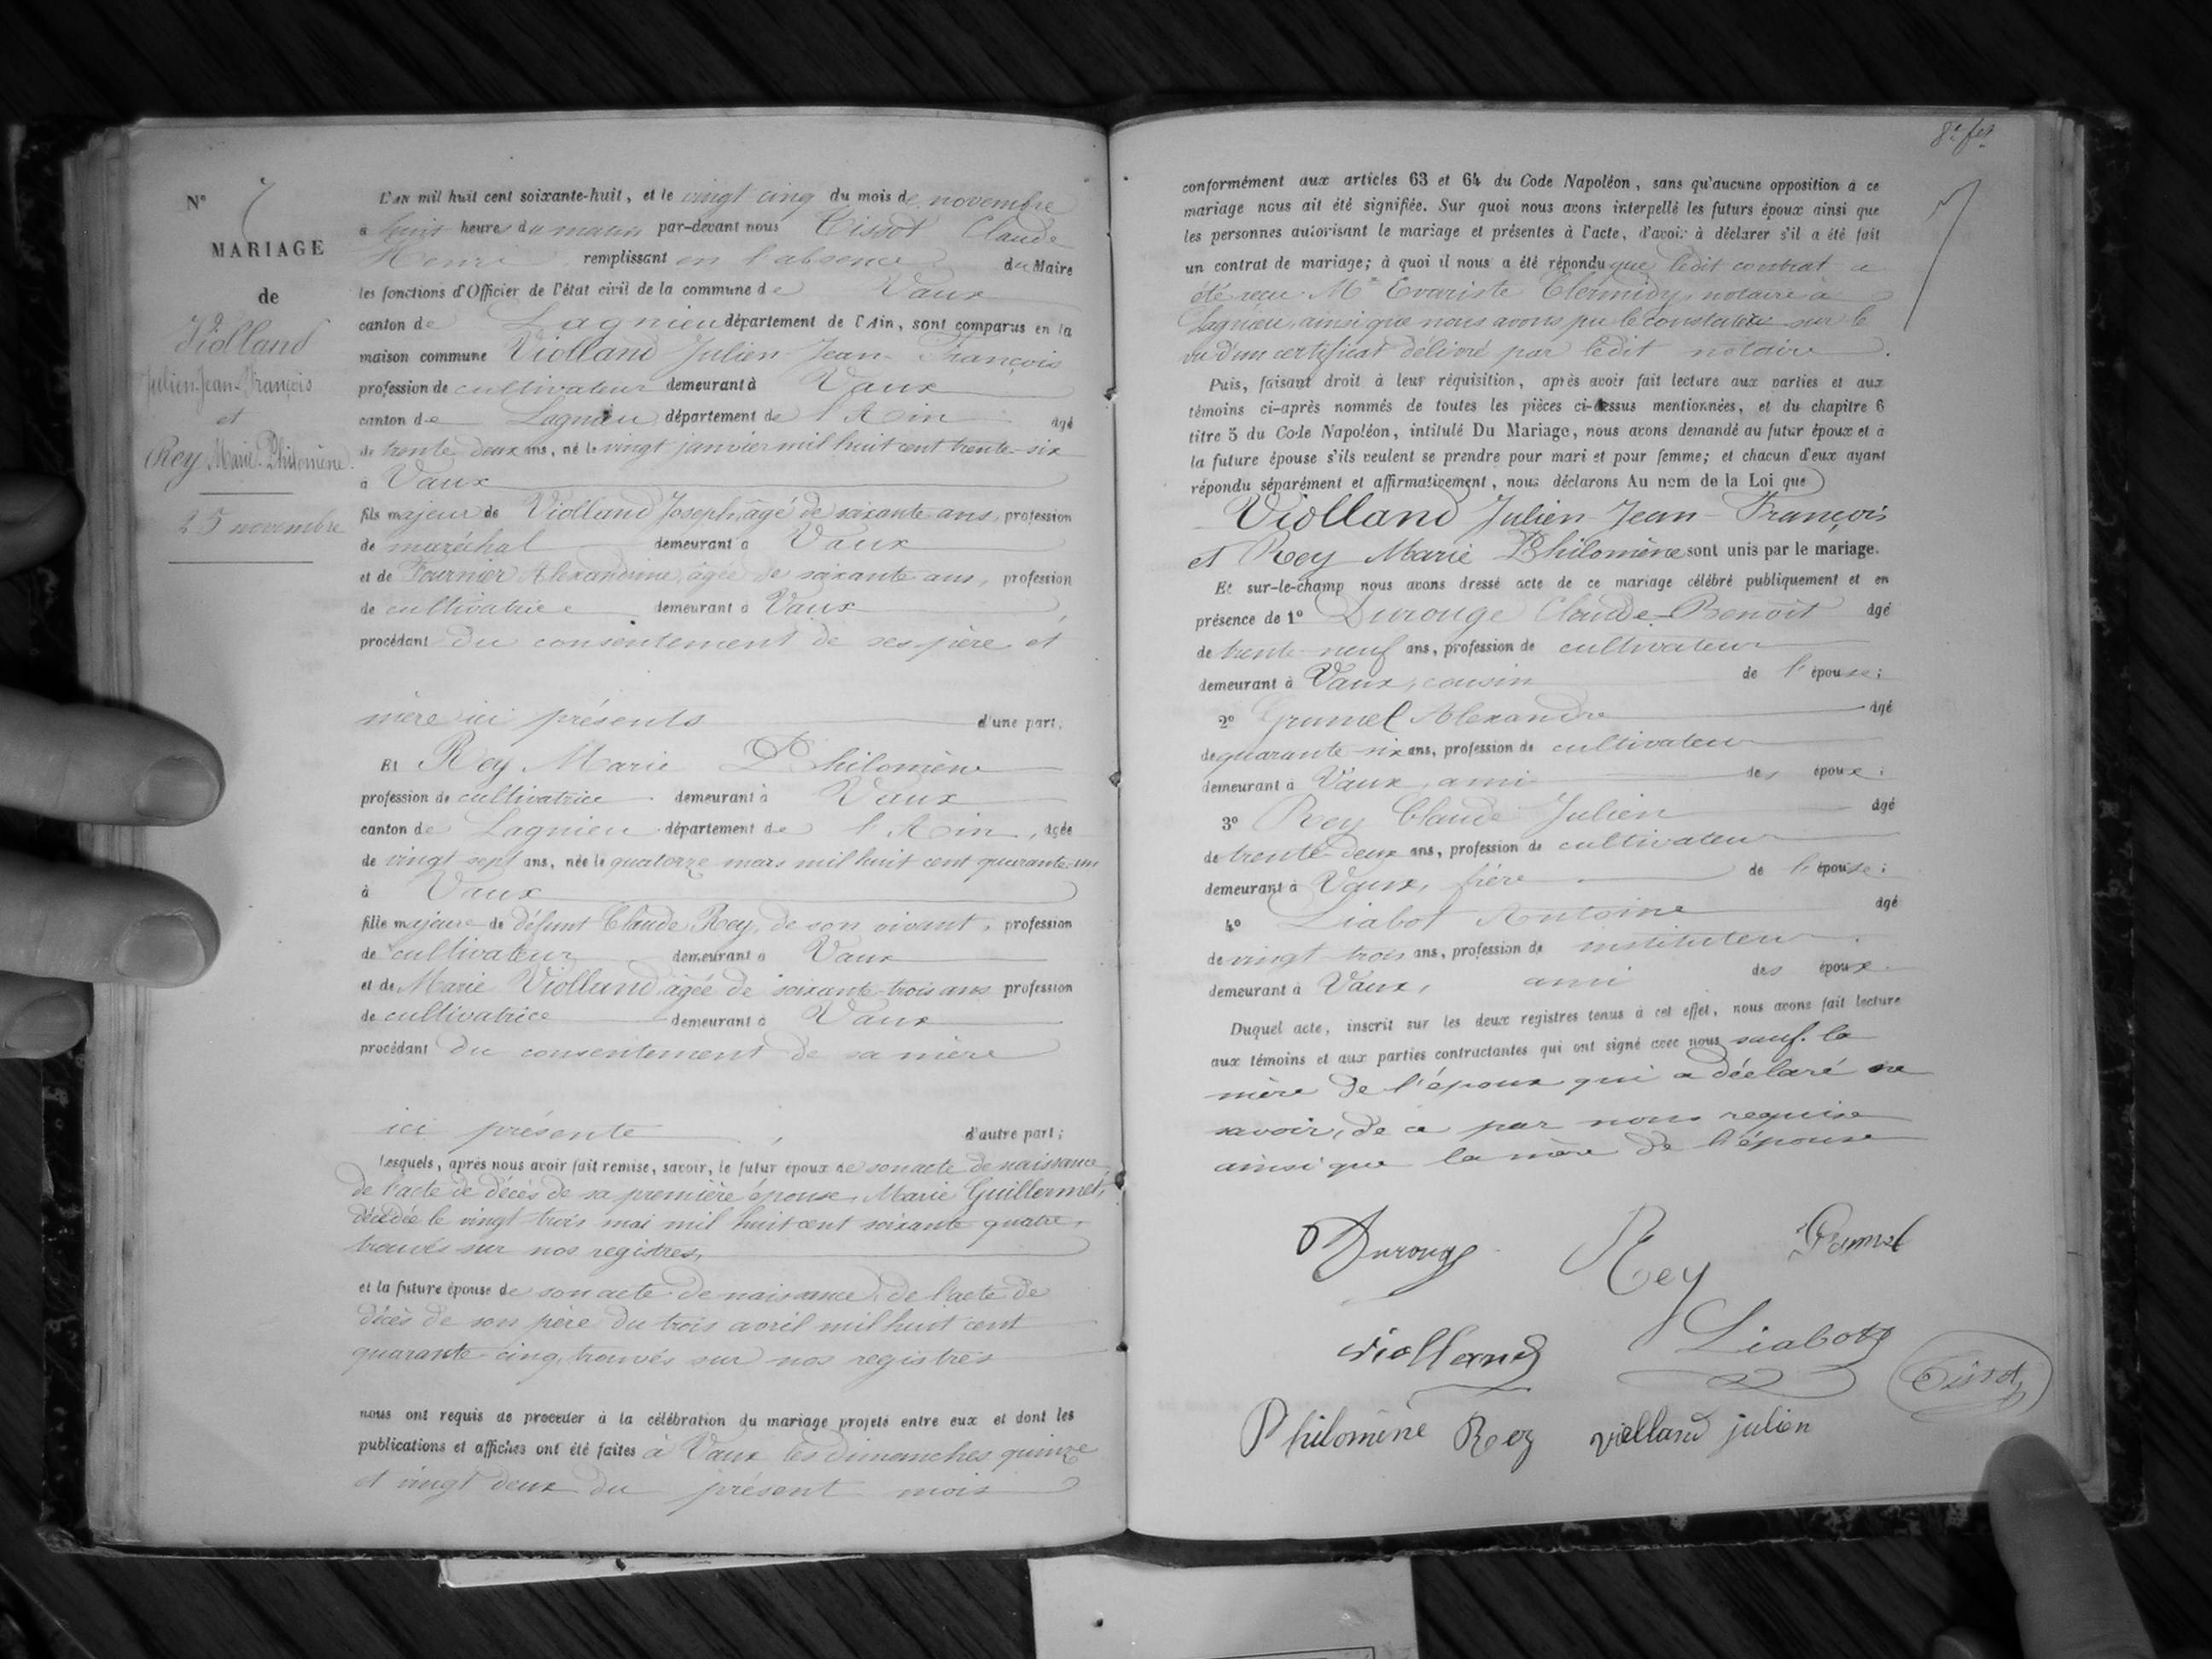 N° 7
MARIAGE
de
Violland
Julien-Jean-François
et
Rey Marie-Philomène.
25 novembre
L'AN mil huit cent soixante-huit, et le vingt cinq du mois de novembre
à huit heures du matin par-devant nous Tissot Claude
Henri remplissant en l'absence du Maire
les fonctions d'Officier de l'état civil de la commune de Vaux
canton de Lagnieu département de l'Ain, sont comparus en la
maison commune Violland Julien-Jean-François
profession de cultivateur demeurant à Vaux
canton de Lagnieu département de l'Ain âgé
de trente deux ans, né le vingt janvier mil huit cent trente-six
à Vaux
fils majeur de Violland Joseph, âgé de soixante ans, profession
de maréchal demeurant à Vaux
et de Fournier Alexandrine, âgée de soixante ans, profession
de cultivatrice demeurant à Vaux
procédant du consentement de ses père et
mère ici présents d'une part.
Et Rey Marie Philomène
profession de cultivatrice demeurant à Vaux
canton de Lagnieu département de l'Ain, âgée
de vingt sept ans, née le quatorze mars mil huit cent quarante-un
à Vaux
fille majeure de défunt Claude Rey, de son vivant, profession
de cultivateur demeurant à Vaux
et de Marie Violland âgée de soixante-trois ans profession
de cultivatrice demeurant à Vaux
procédant du consentement de sa mère
ici présente, d'autre part;
Lesquels, après nous avoir fait remise, savoir, le futur époux de son acte de naissance,
de l'acte de décès de sa première épouse, Marie Guillermet,
décédée le vingt trois mai mil huit cent soixante quatre,
trouvés sur nos registres,
et la future épouse de son acte de naissance, de l'acte de
décès de son père du trois avril mil huit cent
quarante-cinq, trouvés sur nos registres
nous ont requis de procéder à la célébration du mariage projeté entre eux et dont les
publications et affiches ont été faites à Vaux les dimanches quinze
et vingt deux du présent mois
conformément aux articles 63 et 64 du Code Napoléon, sans qu'aucune opposition à ce
mariage nous ait été signifiée. Sur quoi nous avons interpellé les futurs époux ainsi que
les personnes autorisant le mariage et présentes à l'acte, d'avoir à déclarer s'il a été fait
un contrat de mariage; à quoi il nous a été répondu que ledit contrat a
été reçu Me Evariste Clermidy, notaire à
Lagnieu, ainsi que nous avons pu le constater sur le
vu d'un certificat délivré par ledit notaire.
Puis, faisant droit à leur réquisition, après avoir fait lecture aux parties et aux
témoins ci-après nommés de toutes les pièces ci-dessus mentionnées, et du chapitre 6
titre 5 du Code Napoléon, intitulé Du Mariage, nous avons demandé au futur époux et à
la future épouse s'ils veulent se prendre pour mari et pour femme; et chacun d'eux ayant
répondu séparément et affirmativement, nous déclarons Au nom de la Loi que
Violland Julien-Jean-François
et Rey Marie Philomène sont unis par le mariage.
Et sur-le-champ nous avons dressé acte de ce mariage célébré publiquement et en
présence de 1° Durouge Claude-Benoît âgé
de trente-neuf ans, profession de cultivateur
demeurant à Vaux, cousin de l'épouse;
2° Grumel Alexandre âgé
de quarante-six ans, profession de cultivateur
demeurant à Vaux, ami des époux;
3° Rey Claude Julien âgé
de trente-deux ans, profession de cultivateur
demeurant à Vaux, frère de l'épouse;
4° Liabot Antoine âgé
de vingt-trois ans, profession de instituteur
demeurant à Vaux, ami des époux.
Duquel acte, inscrit sur les deux registres tenus à cet effet, nous avons fait lecture
aux témoins et aux parties contractantes qui ont signé avec nous sauf. la
mère de l'époux qui a déclaré ne
savoir, de ce par nous requise
ainsi que la mère de l'épouse
Durouge Rey Grumel
violland Liabot Tissot
Philomène Rey violland julien